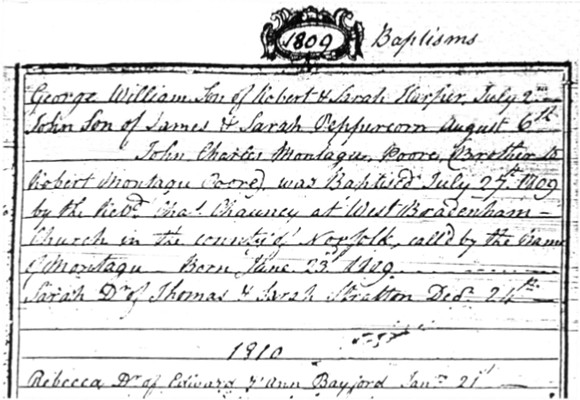 1809 Baptisms
George William Son of Robert & Sarah Harper July 2nd
John Son of James & Sarah Peppercorn August 6th
John Charles Montague Poore, (Brother to
Robert Montagu Poore) was Baptised July 27th 1809
by the Revd Chas Chauncy at West Bradenham
Church in the county of Norfolk, call'd by the Name
of Montagu Born June 23d 1809.
Sarah Dr of Thomas & Sarah Stratton Decr 24th
1810
Rebecca Dr of Edward & Ann Bayford Jany 21st